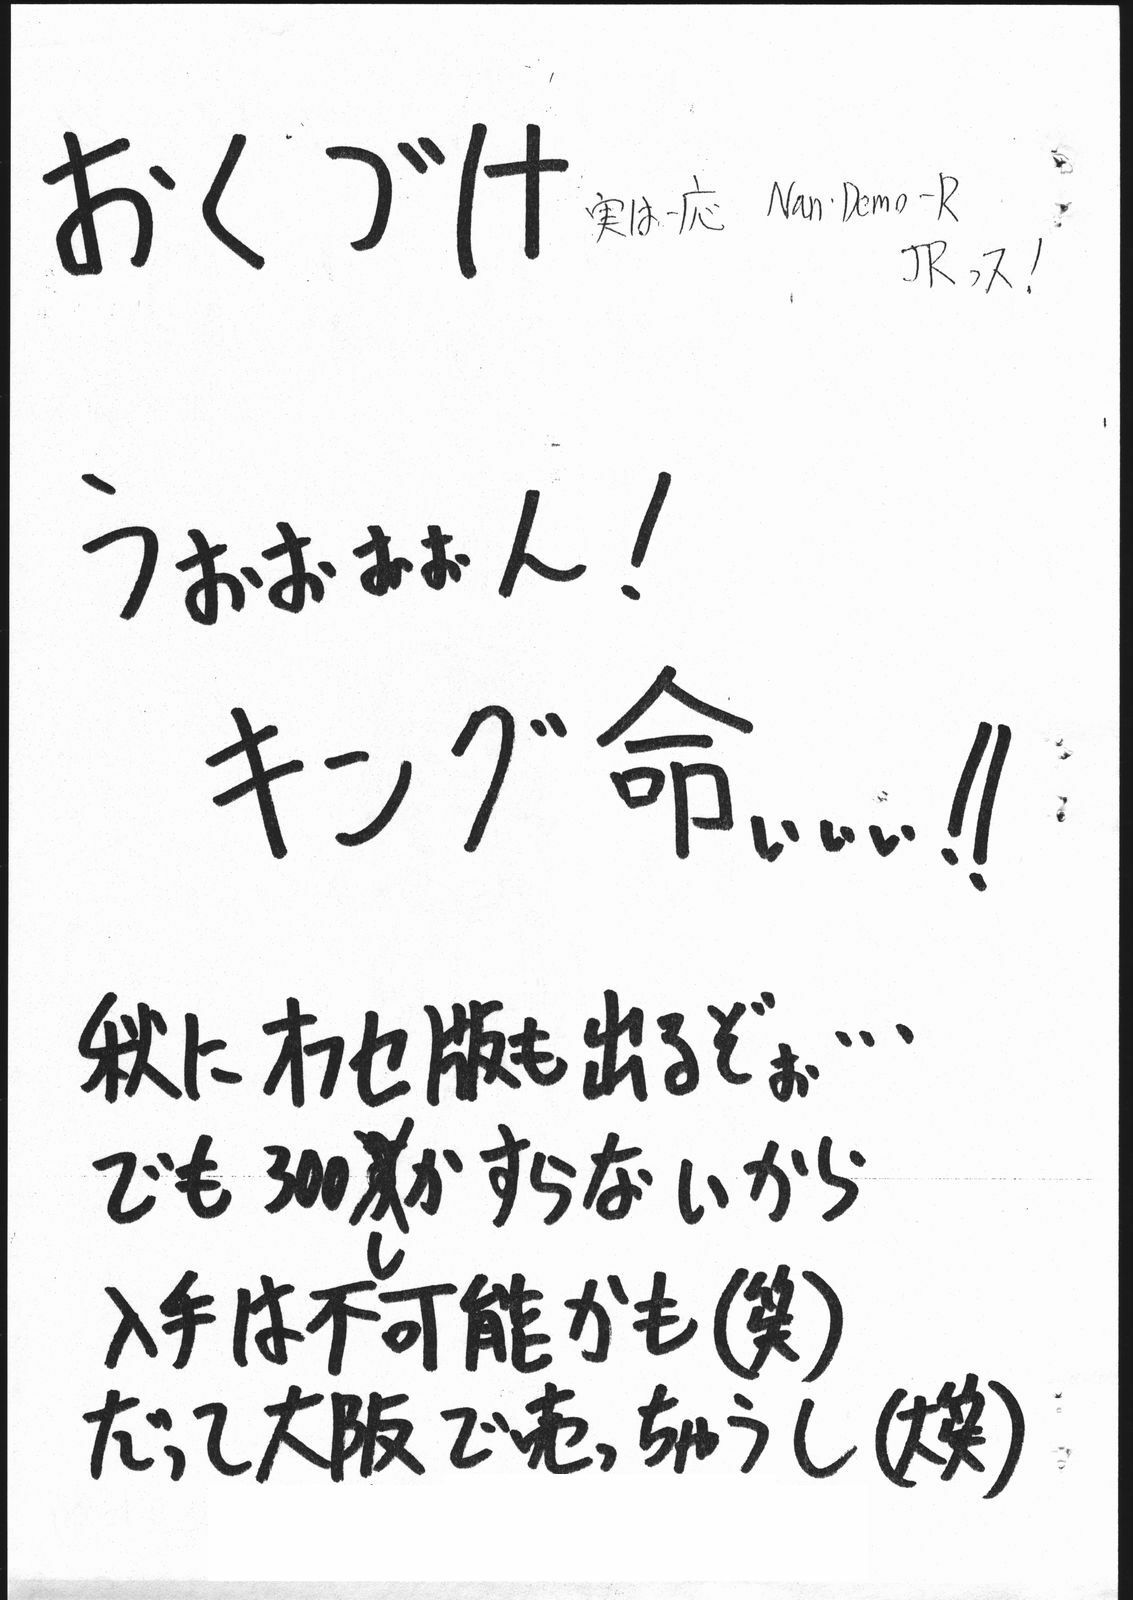 おくづけ 実は一応 Nan・Demo-R
JRっス!
うぉぉぉぉん!
キング命ぃぃぃ!!
秋にオフセ版も出るぞぉ…
でも300しかすらないから
入手は不可能かも(笑)
だって大阪で売っちゃうし(大笑)